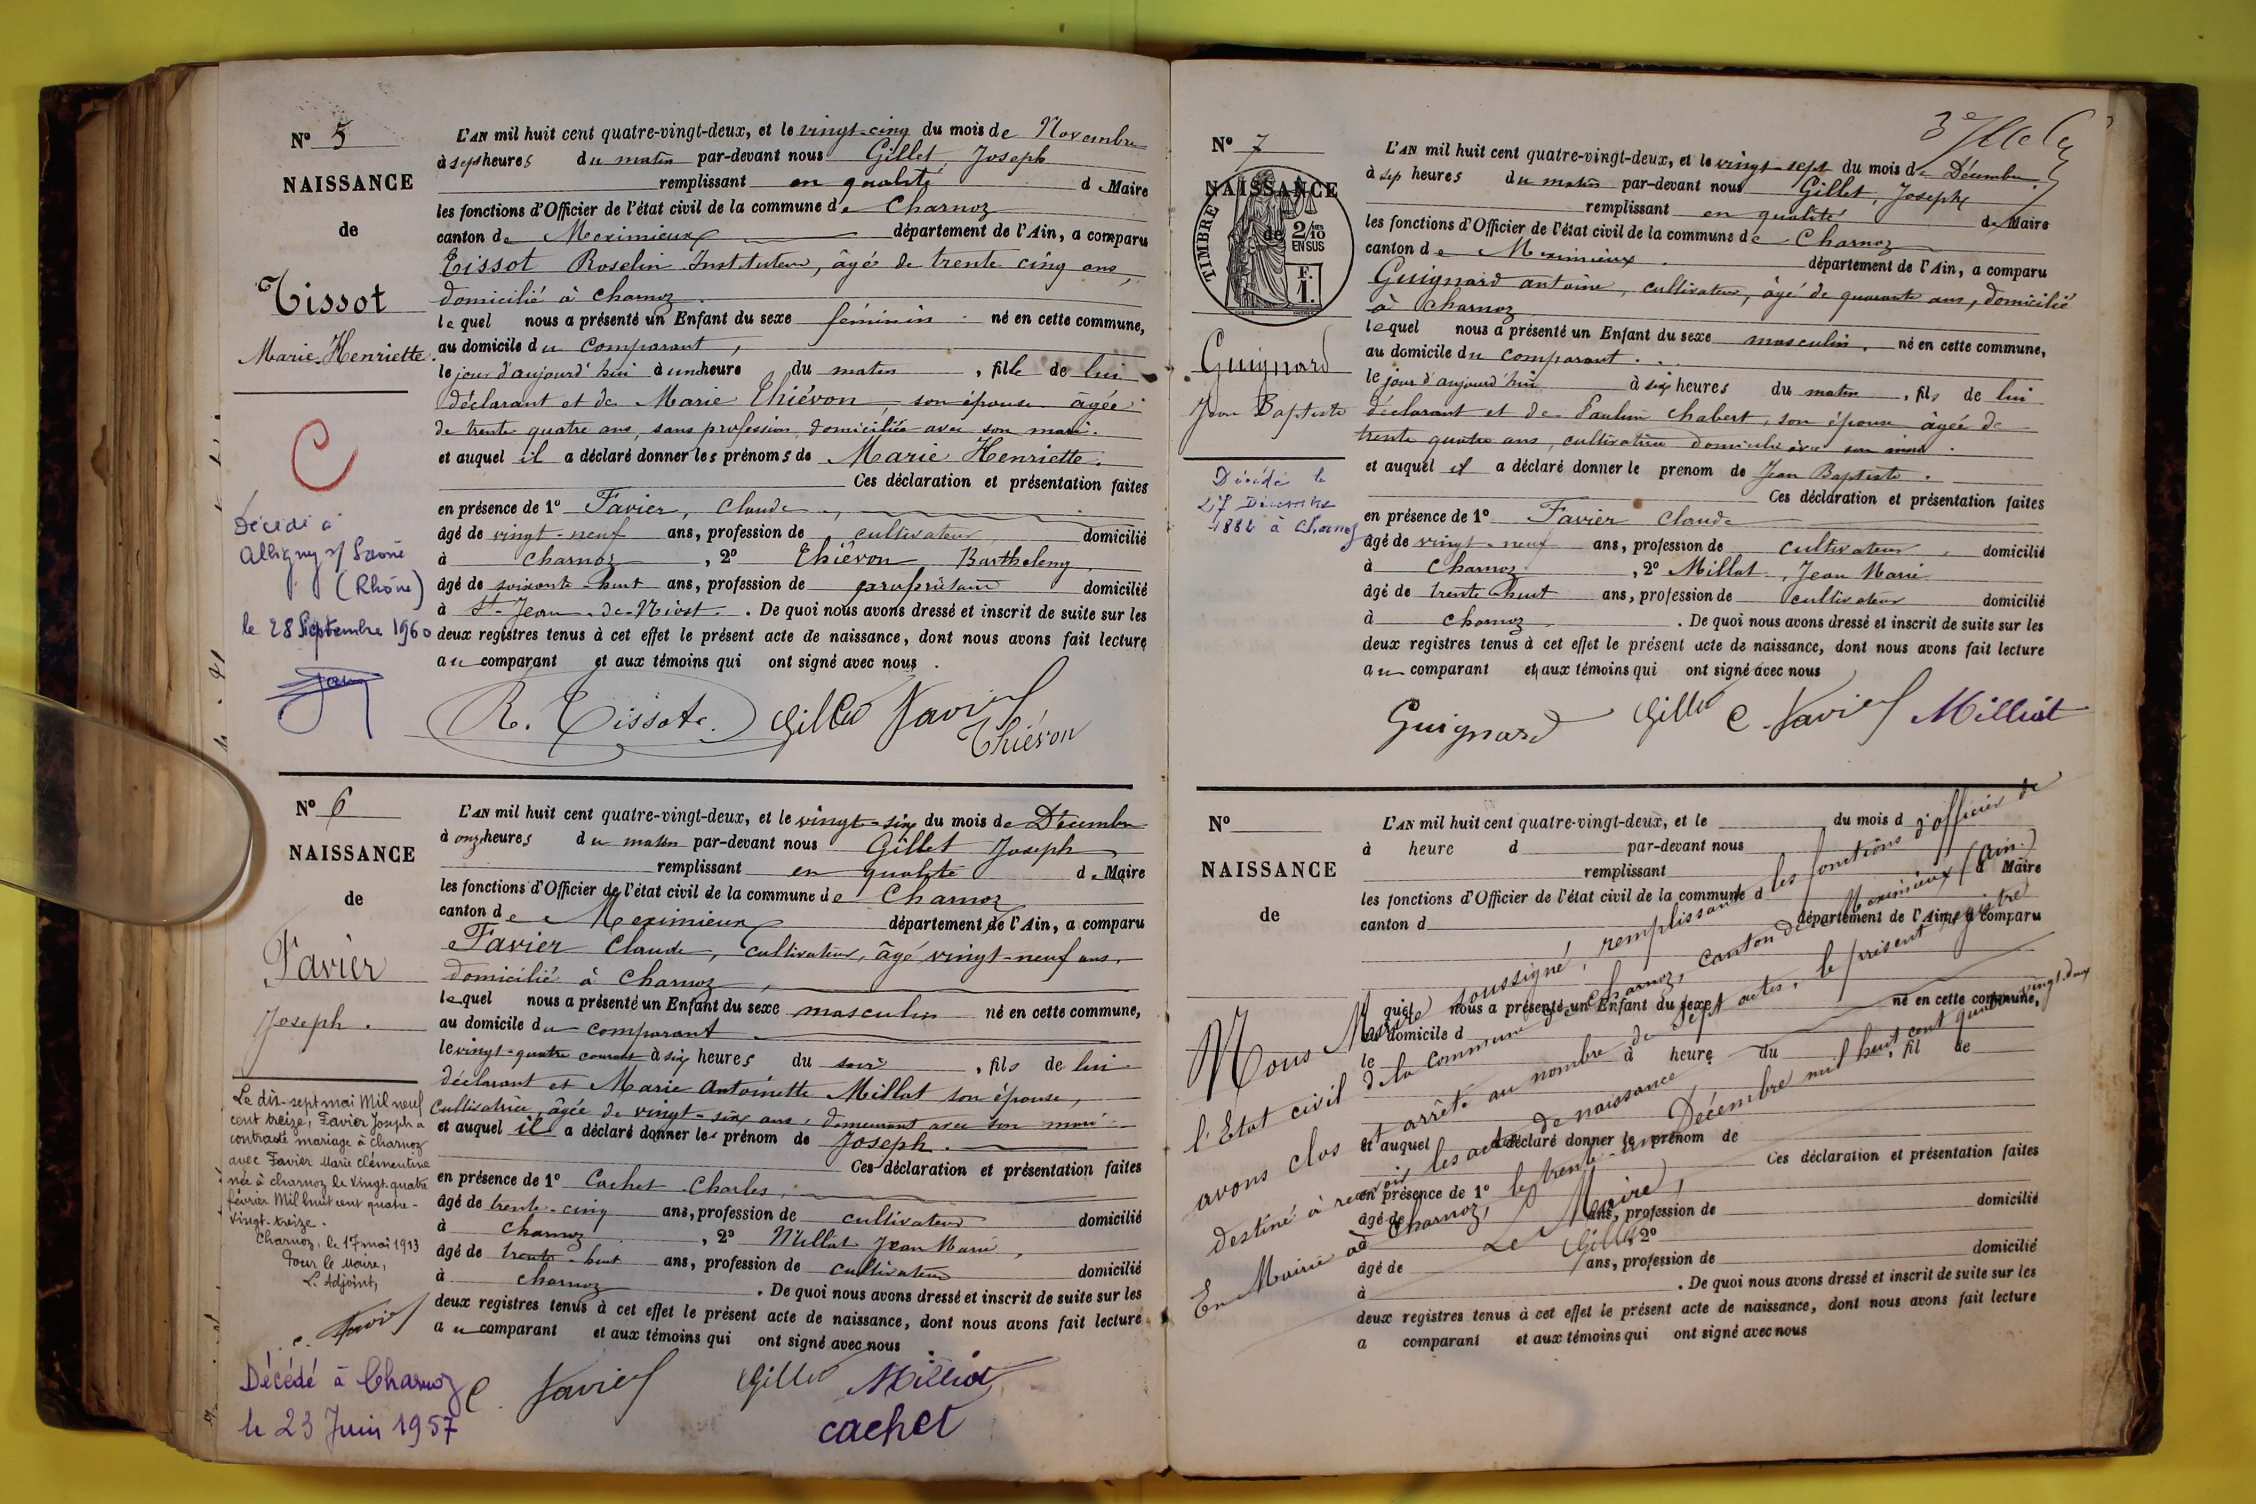 N° 5
NAISSANCE
de
Tissot
Marie Henriette.
C
Décédé à
Albigny s/ Saône
(Rhône)
le 28 Septembre 1960
L'AN mil huit cent quatre-vingt-deux, et le vingt-cinq du mois de Novembre
à sept heures du matin par-devant nous Gillet, Joseph
remplissant en qualité de Maire
les fonctions d'Officier de l'état civil de la commune de Charnoz
canton de Meximieux département de l'Ain, a comparu
Tissot Roselin Instituteur, âgé de trente cinq ans,
domicilié à Charnoz.
lequel nous a présenté un Enfant du sexe féminin né en cette commune,
au domicile du comparant,
le jour d'aujourd'hui à une heure du matin, fille de lui
déclarant et de Marie Thiévon son épouse âgée
de trente quatre ans, sans profession, domiciliée avec son mari.
et auquel il a déclaré donner les prénoms de Marie Henriette.
Ces déclaration et présentation faites
en présence de 1° Favier, Claude,
âgé de vingt-neuf ans, profession de cultivateur domicilié
à Charnoz, 2° Thiévon Barthelemy
âgé de soixante-huit ans, profession de propriétaire domicilié
à St-Jean-de-Niost. De quoi nous avons dressé et inscrit de suite sur les
deux registres tenus à cet effet le présent acte de naissance, dont nous avons fait lecture
au comparant et aux témoins qui ont signé avec nous.
R. Tissot Gillet Favier
Thiévon
N° 6
NAISSANCE
de
Favier
Joseph.
Le dix-sept mai Mil neuf
cent treize, Favier Joseph a
contracté mariage à Charnoz
avec Favier Marie Clémentine
née à Charnoz le vingt-quatre
février Mil huit cent quatre-
vingt-treize.
Charnoz, le 17 mai 1913
Pour le Maire,
L'Adjoint,
C. Favier
Décédé à Charnoz
le 23 Juin 1957
L'AN mil huit cent quatre-vingt-deux, et le vingt-six du mois de Décembre
à onze heures du matin par-devant nous Gillet Joseph
remplissant en qualité de Maire
les fonctions d'Officier de l'état civil de la commune de Charnoz
canton de Meximieux département de l'Ain, a comparu
Favier Claude, cultivateur, âgé vingt-neuf ans,
domicilié à Charnoz,
lequel nous a présenté un Enfant du sexe masculin né en cette commune,
au domicile du comparant
le vingt-quatre courant à six heures du soir, fils de lui
déclarant et Marie Antoinette Millot son épouse,
Cultivatrice, âgée de vingt-six ans, demeurant avec son mari.
et auquel il a déclaré donner le prénom de Joseph.
Ces déclaration et présentation faites
en présence de 1° Cachet Charles,
âgé de trente-cinq ans, profession de cultivateur domicilié
à Charnoz, 2° Millot Jean Marie,
âgé de trente-huit ans, profession de cultivateur domicilié
à Charnoz. De quoi nous avons dressé et inscrit de suite sur les
deux registres tenus à cet effet le présent acte de naissance, dont nous avons fait lecture
au comparant et aux témoins qui ont signé avec nous
C. Favier Gillet Milliot
cachet
N° 7
NAISSANCE
de
TIMBRE
2/10 EN SUS
F. 1.
Guignard
Jean Baptiste
Décédé le
27 Décembre
1882 à Charnoz
L'AN mil huit cent quatre-vingt-deux, et le vingt-sept du mois de Décembre
à sept heures du matin par-devant nous Gillet, Joseph
remplissant en qualité de Maire
les fonctions d'Officier de l'état civil de la commune de Charnoz
canton de Meximieux département de l'Ain, a comparu
Guignard antoine, cultivateur, âgé de quarante ans, domicilié
à Charnoz
lequel nous a présenté un Enfant du sexe masculin, né en cette commune,
au domicile du comparant.
le jour d'aujourd'hui à six heures du matin, fils de lui
déclarant et de Pauline Chabert, son épouse âgée de
trente quatre ans, cultivatrice domiciliée avec son mari.
et auquel il a déclaré donner le prenom de Jean Baptiste.
Ces déclaration et présentation faites
en présence de 1° Favier Claude
âgé de vingt-neuf ans, profession de cultivateur, domicilié
à Charnoz, 2° Millot, Jean Marie
âgé de trente huit ans, profession de cultivateur domicilié
à Charnoz. De quoi nous avons dressé et inscrit de suite sur les
deux registres tenus à cet effet le présent acte de naissance, dont nous avons fait lecture
au comparant et aux témoins qui ont signé avec nous
Guignard Gillet C. Favier Milliot
N°
NAISSANCE
de
L'AN mil huit cent quatre-vingt-deux, et le du mois d
à heure d par-devant nous
remplissant d Maire
les fonctions d'Officier de l'état civil de la commune d
canton d département de l'Ain, a comparu
quel nous a présenté un Enfant du sexe né en cette commune,
au domicile d
le à heure du, fil de
et auquel a déclaré donner le prénom de
Ces déclaration et présentation faites
en présence de 1°
âgé de ans, profession de domicilié
à, 2°
âgé de ans, profession de domicilié
à. De quoi nous avons dressé et inscrit de suite sur les
deux registres tenus à cet effet le présent acte de naissance, dont nous avons fait lecture
a comparant et aux témoins qui ont signé avec nous
Nous Maire soussigné, remplissant les fonctions d'officier de
l'Etat civil de la commune de Charnoz, canton de Meximieux (Ain.)
avons clos et arrêté au nombre de sept actes, le présent registre
destiné à recevoir les actes de naissance.
En Mairie à Charnoz, le trente-un Décembre mil huit cent quatre vingt deux
Le Maire,
Gillet